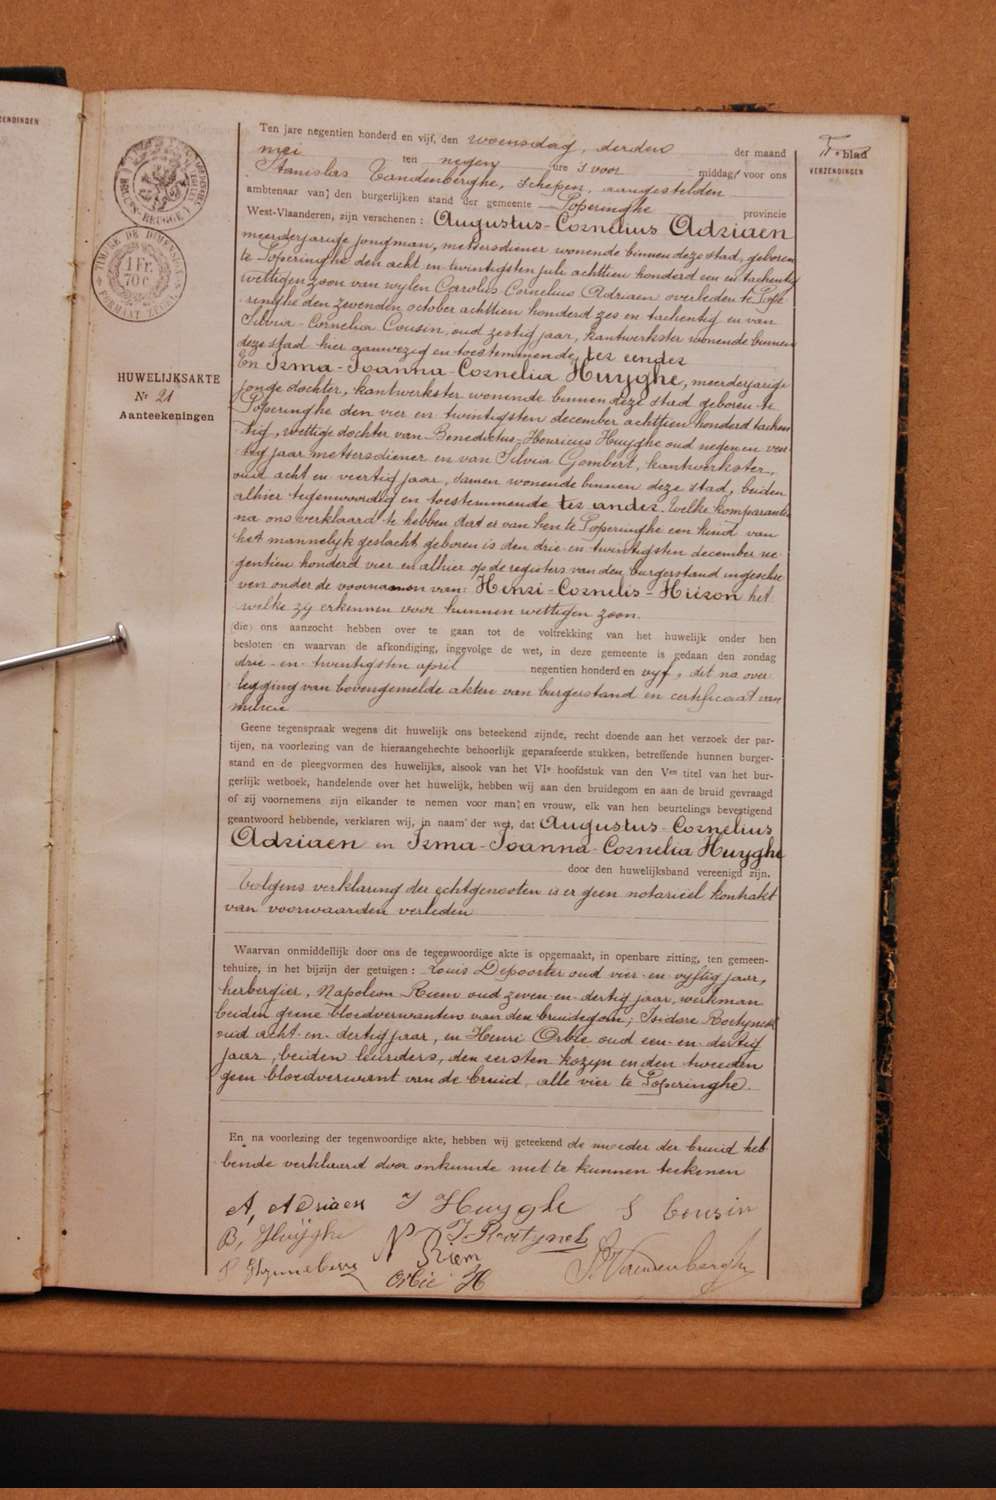 ZENDINGEN
Ten jare negentien honderd en vijf, den woensdag, derden
mei ten negen ure 's voor middag, voor ons
Stanislas Vandenberghe, schepen, aangestelden
ambtenaar van den burgerlijken stand der gemeente Poperinghe provincie
West-Vlaanderen, zijn verschenen : Augustus-Cornelius Adriaen
meerderjarige jongman, mettersdiener wonende binnen deze stad, geboren
te Poperinghe den acht en twintigsten juli achttien honderd een en tachentig
wettigen zoon van wylen Carolus-Cornelius Adriaen overleden te Pope
ringhe den zevenden october achttien honderd zes en tachentig en van
Silvia-Cornelia Cousin, oud zestig jaar, kantwerkster wonende binnen
deze stad hier aanwezig en toestemmende, ter eender
En Irma-Joanna-Cornelia Huyghe, meerderjarige
jonge dochter, kantwerkster wonende binnen deze stad geboren te
Poperinghe den vier en twintigsten december achttien honderd tachen
tig, wettige dochter van Benedictus-Henricus Huyghe oud negen en veer
tig jaar mettersdiener en van Silvia Gombert, kantwerkster,
oud acht en veertig jaar, samen wonende binnen deze stad, beiden
alhier tegenwoordig en toestemmende ter ander. Welke komparanten
na ons verklaard te hebben dat er van hen te Poperinghe een kind van
het mannelyk geslacht geboren is den drie en twintigsten december ne
gentien honderd vier en alhier op de registers van den burgerstand ingeschre
ven onder de voornamen van: Henri-Cornelis-Hieron het
welke zy erkennen voor hunnen wettigen zoon.
(die) ons aanzocht hebben over te gaan tot de voltrekking van het huwelijk onder hen
besloten en waarvan de afkondiging, ingevolge de wet, in deze gemeente is gedaan den zondag
drie en twintigsten april negentien honderd en vyf, dit na over
legging van bovengemelde akten van burgerstand en certificaat van
milicie
Geene tegenspraak wegens dit huwelijk ons beteekend zijnde, recht doende aan het verzoek der par-
tijen, na voorlezing van de hieraangehechte behoorlijk geparafeerde stukken, betreffende hunnen burger-
stand en de pleegvormen des huwelijks, alsook van het VIe hoofdstuk van den Ven titel van het bur-
gerlijk wetboek, handelende over het huwelijk, hebben wij aan den bruidegom en aan de bruid gevraagd
of zij voornemens zijn elkander te nemen voor man en vrouw, elk van hen beurtelings bevestigend
geantwoord hebbende, verklaren wij, in naam der wet, dat Augustus-Cornelius
Adriaen en Irma-Joanna-Cornelia Huyghe
door den huwelijksband vereenigd zijn.
Volgens verklaring der echtgenooten is er geen notarieel kontrakt
van voorwaarden verleden
Waarvan onmiddellijk door ons de tegenwoordige akte is opgemaakt, in openbare zitting, ten gemeen-
tehuize, in het bijzijn der getuigen : Louis Depoorter oud vier en vyftig jaar,
herbergier, Napoleon Riem oud zeven en dertig jaar, werkman
beiden geene bloedverwanten van den bruidegom; Isidore Roetynck
oud acht en dertig jaar, en Henri Orbie oud een en dertig
jaar, beiden leurders, den eersten kozyn en den tweeden
geen bloedverwant van de bruid, alle vier te Poperinghe.
En na voorlezing der tegenwoordige akte, hebben wij geteekend de moeder der bruid heb
bende verklaard door onkunde niet te kunnen teekenen
A, Adriaen I Huyghe S Cousin
B, Huyghe N Riem I. Roetynck
Orbie H S. Vandenberghe
HUWELIJKSAKTE
Nr 21
Aanteekeningen
TIMBRE DE DIMENSION
1 Fr.
70 C.
FORMAAT ZEGEL
e blad
VERZENDINGEN